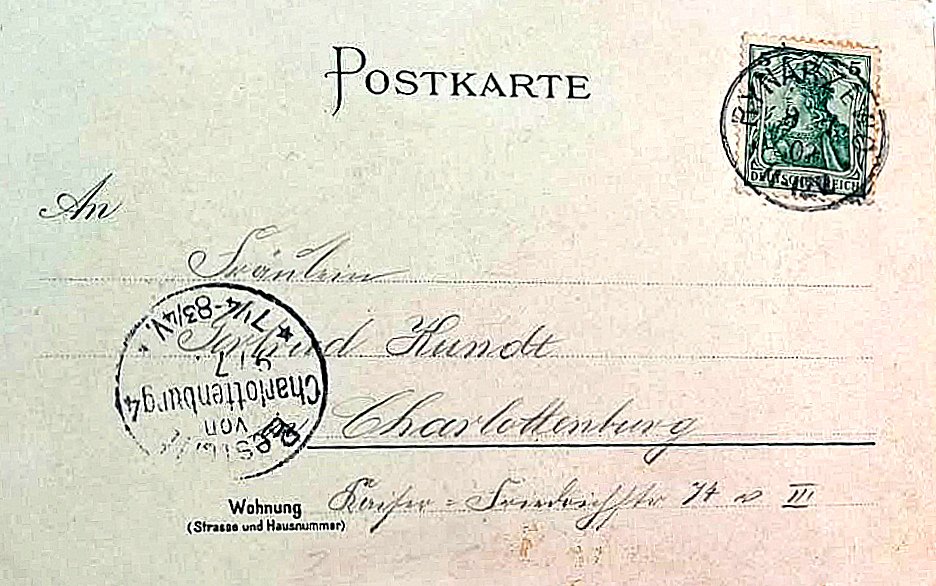 POSTKARTE
5 5
DEUTSCHES REICH
An
Fräulein
Gertrud Kundt
Charlottenburg
Wohnung
(Strasse und Hausnummer)
Kaiser-Friedrichstr 74 v III
Bestellt
von
Charlottenburg 4
9/7
* 7 1/4-8 3/4 V. *